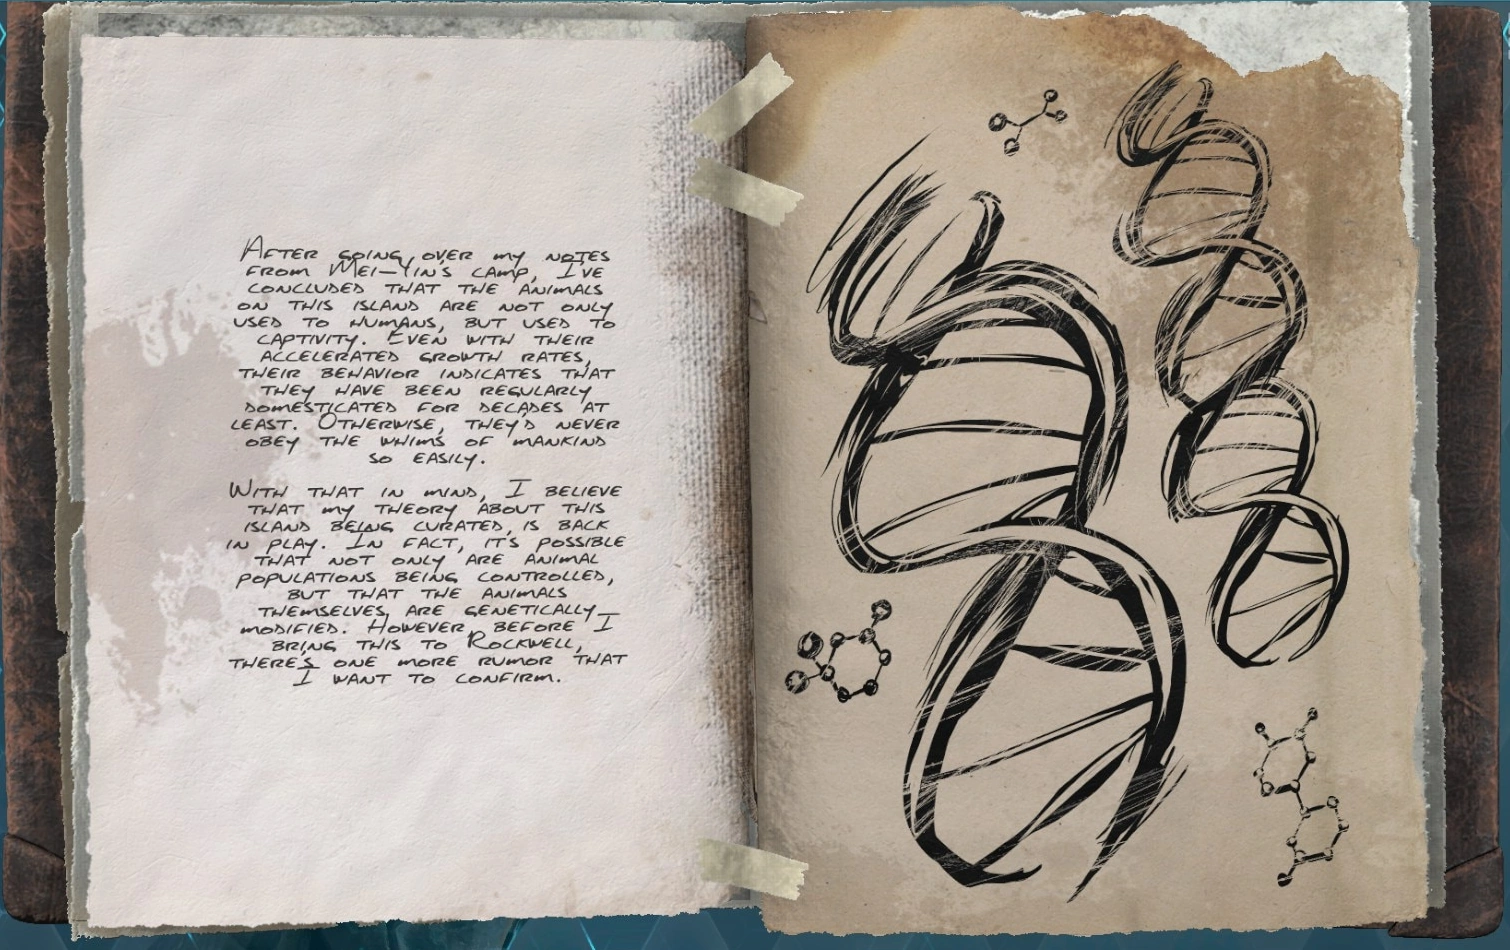 After going over my notes
from Mei-Yin's camp, I've
concluded that the animals
on this island are not only
used to humans, but used to
captivity. Even with their
accelerated growth rates,
their behavior indicates that
they have been regularly
domesticated for decades at
least. Otherwise, they'd never
obey the whims of mankind
so easily.
With that in mind, I believe
that my theory about this
island being curated, is back
in play. In fact, it's possible
that not only are animal
populations being controlled,
but that the animals
themselves are genetically
modified. However, before I
bring this to Rockwell,
there's one more rumor that
I want to confirm.